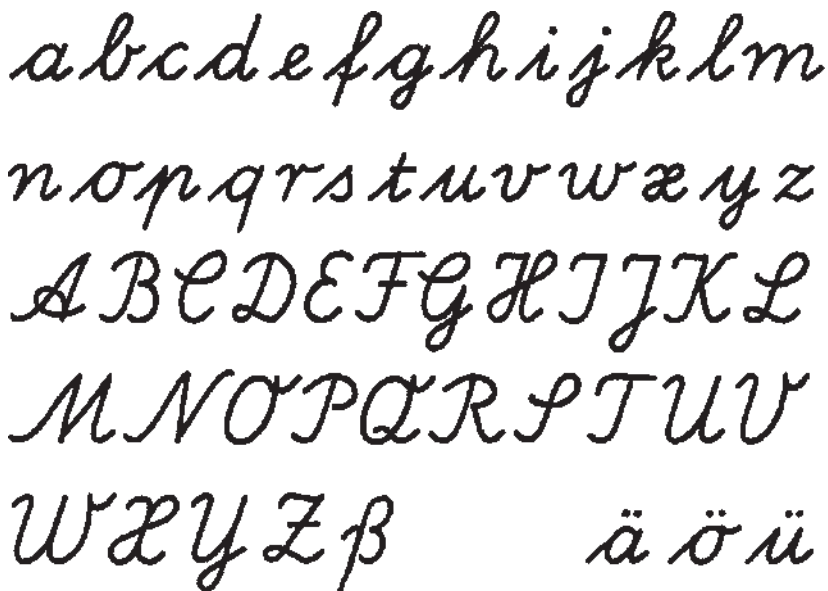 a b c d e f g h i j k l m
n o p q r s t u v w x y z
A B C D E F G H I J K L
M N O P Q R S T U V
W X Y Z ß ä ö ü